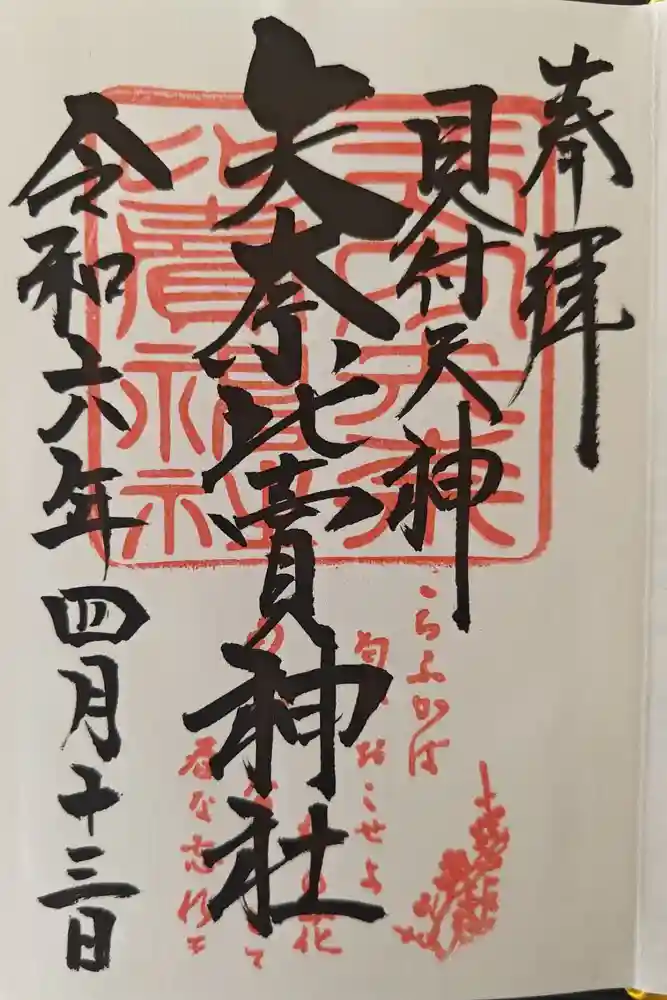 奉拝
見付天神
矢奈比賣神社
令和六年四月十三日
こちふかば
匂 おこせよ
の花
て
春な忘れそ